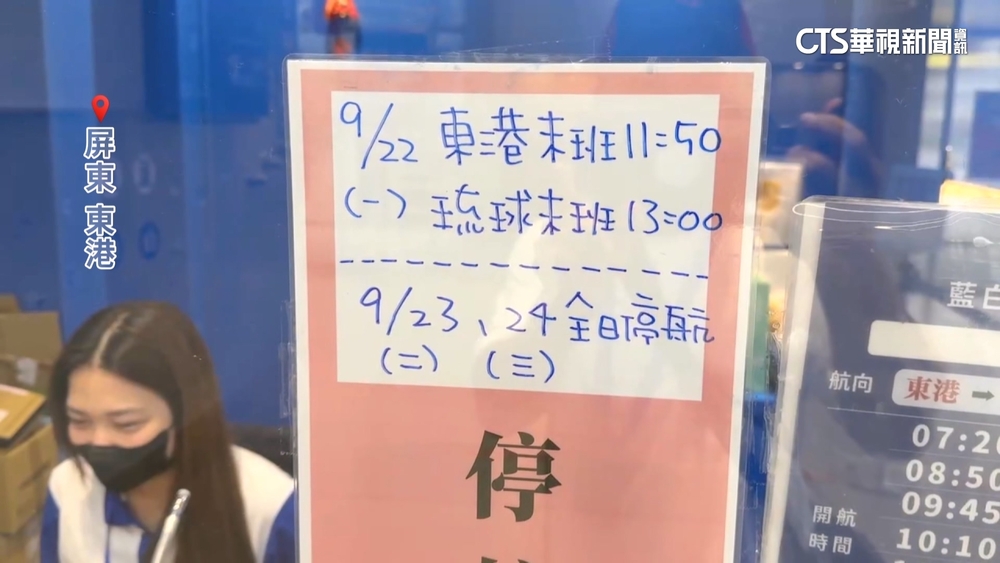 CTS華視新聞資訊
屏東 東港
9/22 東港末班11:50
(一) 琉球末班13:00
9/23、24全日停航
(二) (三)
停
藍白
航向 東港 ➡
07:20
08:50
09:45
開航時間 10:10